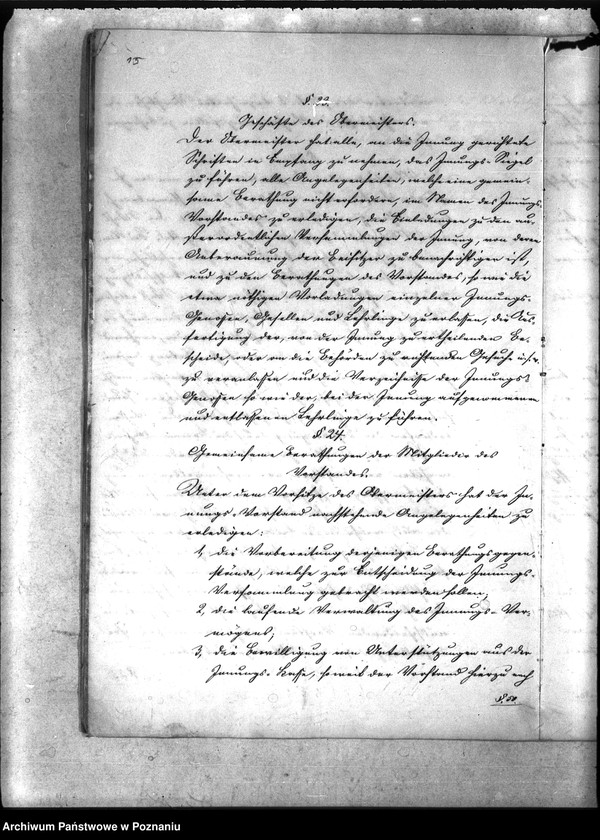 15
§. 23.
Geschäfte des Obermeisters.
Der Obermeister hat alle, an die Innung gerichtete
Schriften in Empfang zu nehmen, das Innungs-Siegel
zu führen, alle Angelegenheiten, welche eine gemein-
same Berathung nicht erfordern, im Namen des Innungs-
Vorstandes zu erledigen, die Einladungen zu den au-
ßerordentlichen Versammlungen der Innung, von deren
Anberaumung der Beisitzer zu benachrichtigen ist,
und zu den Berathungen des Vorstandes, so wie die
etwa nöthigen Vorladungen einzelner Innungs-
Genossen, Gesellen und Lehrlinge zu erlassen, die Aus-
fertigung der, von der Innung zu ertheilenden Be-
scheide, oder an die Behörden zu richtenden Gesuche
zu veranlassen und die Verzeichnisse der Innungs-
Genossen so wie der, bei der Innung aufgenommenen
und entlassenen Lehrlinge zu führen.
§. 24.
Gemeinsame Berathungen der Mitglieder des
Vorstandes.
Unter dem Vorsitze des Obermeisters hat der In-
nungs-Vorstand nachstehende Angelegenheiten zu
erledigen:
1, die Vorbereitung derjenigen Berathungsgegen-
stände, welche zur Entscheidung der Innungs-
Versammlung gebracht werden sollen;
2, die laufende Verwaltung des Innungs-Ver-
mögens;
3, die Bewilligung von Unterstützungen aus der
Innungs-Kasse, soweit der Vorstand hierzu nach
§. 50
Archiwum Państwowe w Poznaniu